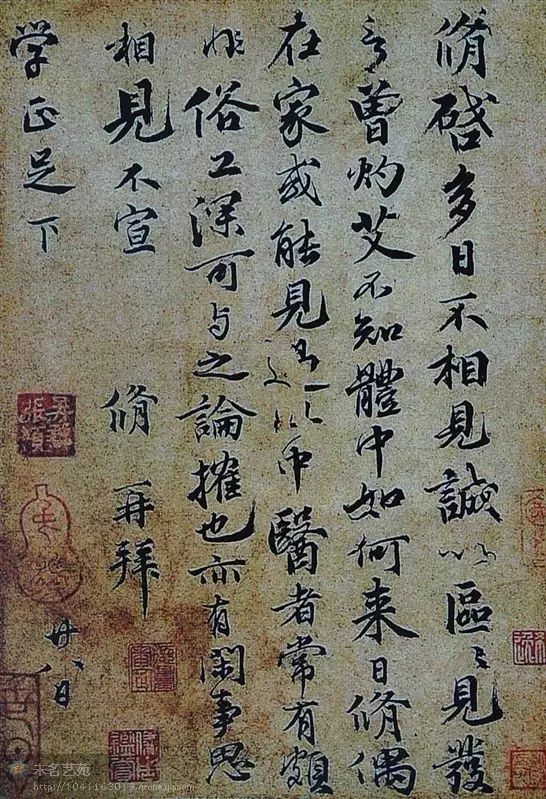 脩啓多日不相見誠以區〻見發
言曾灼艾不知體中如何来日脩偶
在家或能見過此中醫者常有頗
非俗工深可与之論搉也亦有閑事思
相見不宣 脩再拜
学正足下 廿八日
未名艺苑
http://1041163013.qzone.qq.com